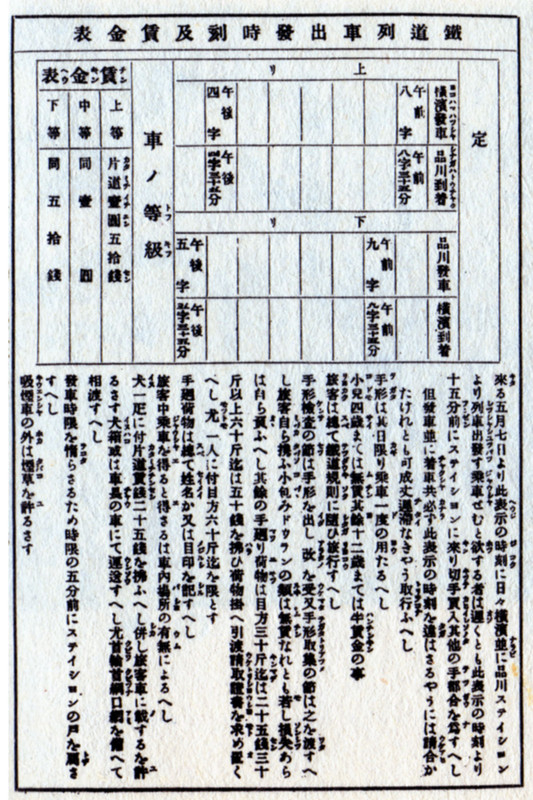 鐵道列車出發時刻及賃金表
定
上り
橫濱發車
午前八字
午後四字
品川到着
午前八字三十五分
午後四字三十五分
下り
品川發車
午前九字
午後五字
橫濱到着
午前九字三十五分
午後五字三十五分
車ノ等級
賃金表
上等 片道壹圓五拾錢
中等 同壹圓
下等 同五拾錢
來る五月七日より此表示の時刻に日々橫濱並に品川ステイション
より列車出發す乘車せむと欲する者は遲くとも此表示の時刻より
十五分前にステイションに來り切手買入其他の手都合を爲すへし
但發車並に着車共必す此表示の時刻を違はさるやうには請合か
たけれとも可成丈遲滯なきやう取行ふへし
手形は其日限り乘車一度の用たるへし
小兒四歲までは無賃其餘十二歲までは半賃金の事
旅客は總て鐵道規則に隨ひ旅行すへし
手形檢査の節は手形を出し改を受又手形取集の節は之を渡すへ
し旅客自ら携ふ小包みドウランの類は無賃なれとも若し損失あら
は自ら負ふへし其餘の手廻り荷物は目方三十斤迄は二十五錢三十
斤以上六十斤迄は五十錢を拂ひ荷物掛へ引渡請取證書を求め置く
へし尤一人に付目方六十斤迄を限とす
手廻荷物は總て姓名か又は目印を記すへし
旅客中乘車を得ると得さるは車內場所の有無によるへし
犬一疋に付片道賃錢二十五錢を拂ふへし倂し旅客車に載するを許
るさす犬箱或は車長の車にて運送すへし尤首輪首綱口網を備へて
相渡すへし
發車時限を惰らさるため時限の五分前にステイションの戶を屑さ
すへし
吸煙車の外は煙草を許るさす